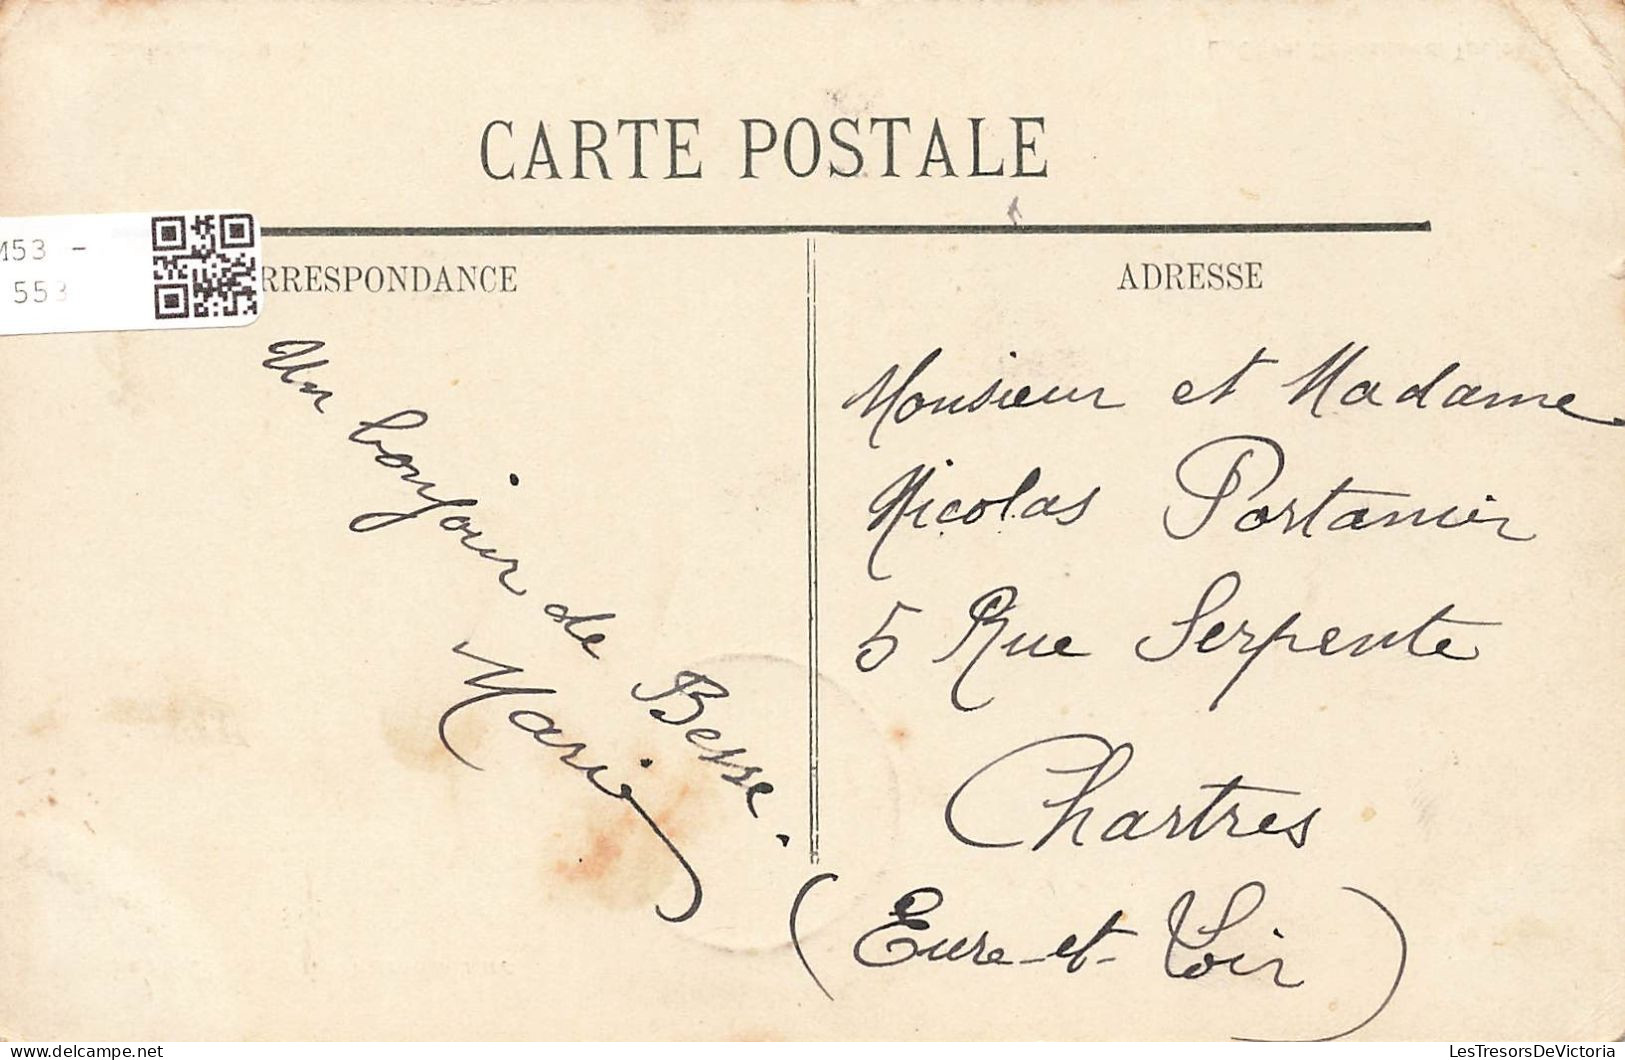 CARTE POSTALE
M53 -
553
RRESPONDANCE
ADRESSE
Un bonjour de Besse.
Marie
Monsieur et Madame
Nicolas Portanier
5 Rue Serpente
Chartres
(Eure-et-Loir)
LesTresorsDeVictoria